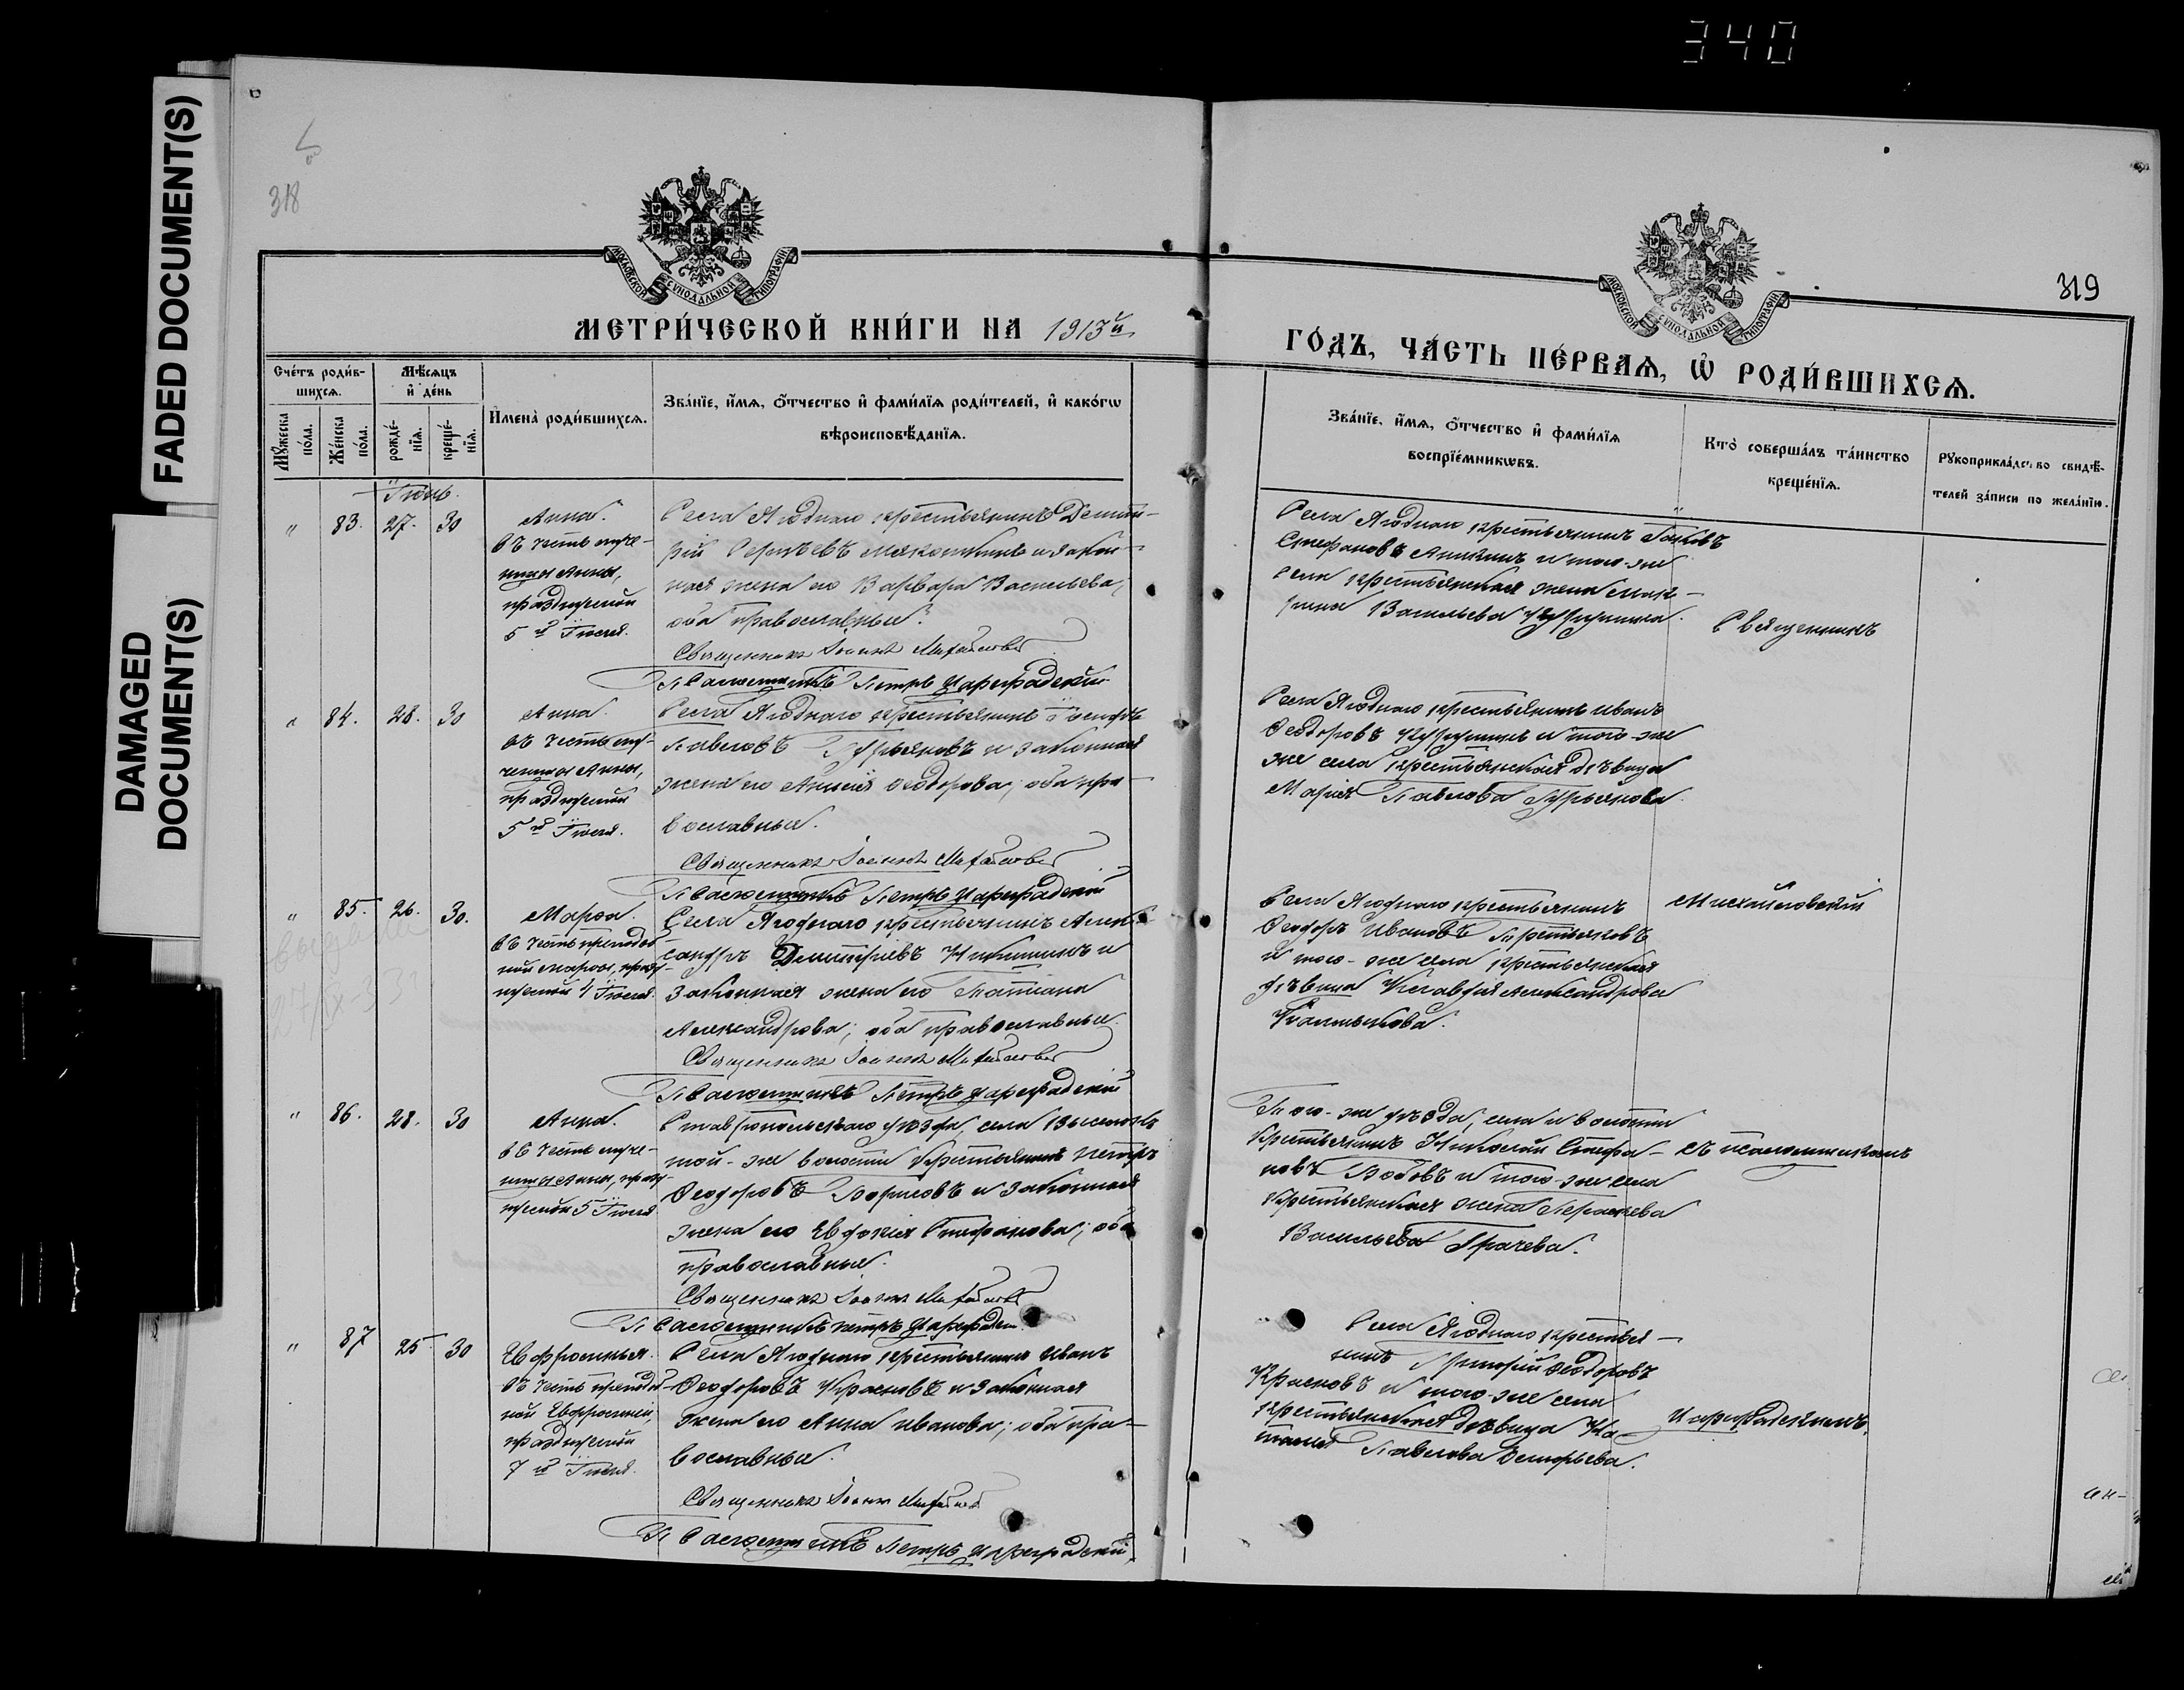 340
FADED DOCUMENT(S)
DAMAGED
DOCUMENT(S)
318
319
МОСКОВСКОЙ СѴНОДАЛЬНОЙ ТИПОГРАФІИ
МОСКОВСКОЙ СѴНОДАЛЬНОЙ ТИПОГРАФІИ
МЕТРИ́ЧЕСКОЙ КНИ́ГИ НА 1913й
ГО́ДЪ, ЧА́СТЬ ПЕ́РВАѦ, Ѡ҆ РОДИ́ВШИХСѦ.
Сче́тъ роди́в-
шихсѧ.
Мꙋ́жеска
по́ла.
Же́нска
по́ла.
Мѣ́сѧцъ
и҆ де́нь
рожде́-
нїѧ.
креще́-
нїѧ.
И҆мена̀ роди́вшихсѧ.
Зва́нїе, и҆́мѧ, ѻ҆́тчество и҆ фами́лїѧ роди́телей, и҆ како́гѡ
вѣроисповѣ́данїѧ.
Зва́нїе, и҆́мѧ, ѻ҆́тчество и҆ фами́лїѧ
воспрїе́мникѡвъ.
Кто̀ соверша́лъ та́инство
креще́нїѧ.
Рꙋкоприкла́дство свидѣ́-
телей за́писи по жела́нїю.
Іюнь.
" 83. 27. 30
Анна.
въ честь муче-
ницы Анны,
празднуемой
5го Іюля.
Села Ягоднаго крестьянинъ Димит-
рій Сергѣевъ Мякоткинъ и закон-
ная жена его Варвара Васильева,
оба православные.
Священникъ Іоаннъ
Псаломщикъ Петръ Цареградскій
Села Ягоднаго крестьянинъ Іаковъ
Стефановъ Аникинъ и того-же
села крестьянская жена Мат-
рена Васильева
Священникъ
" 84. 28. 30
Анна.
въ честь му-
ченицы Анны,
празднуемой
5го Іюля.
Села Ягоднаго крестьянинъ Іосифъ
Павловъ Гурьяновъ и законная
жена его Анисія Ѳеодорова; оба пра-
вославные.
Священникъ Іоаннъ
Псаломщикъ Петръ Цареградскій
Села Ягоднаго крестьянинъ Иванъ
Ѳеодоровъ и того-же
же села крестьянская дѣвица
Марія Павлова Гурьянова.
" 85. 26. 30.
Марѳа.
въ честь преподоб-
ной Марѳы, празд-
нуемой 4 Іюля.
Села Ягоднаго крестьянинъ Алек-
сандръ Димитріевъ Никишинъ и
законная жена его Татіана
Александрова; оба православные.
Священникъ Іоаннъ
Псаломщикъ Петръ Цареградскій
Села Ягоднаго крестьянинъ
Ѳеодоръ Ивановъ Третьяковъ
и того-же села крестьянская
дѣвица Клавдія Александрова
" 86. 28. 30
Анна.
въ честь муче-
ницы Анны, празд-
нуемой 5 Іюля
Ставропольскаго уѣзда, села
той-же волости крестьянинъ Петръ
Ѳеодоровъ Борисовъ и законная
жена его Евдокія Стефанова; оба
православные.
Священникъ Іоаннъ
Псаломщикъ Петръ
Того-же уѣзда, села и волости
крестьянинъ Николай Стефа-
новъ Бобовъ и того-же села
крестьянская жена Пераскева
Васильева Грачева.
съ псаломщикомъ
" 87 25 30
Евфросинья.
въ честь преподоб-
ной Евфросиніи,
празднуемой
7го Іюля.
Села Ягоднаго крестьянинъ Иванъ
Ѳеодоровъ Красновъ и законная
жена его Анна Иванова; оба пра-
вославные.
Священникъ Іоаннъ
Псаломщикъ Петръ Цареградскій.
Села Ягоднаго крестья-
нинъ Григорій Ѳеодоровъ
Красновъ и того-же села
крестьянская дѣвица На-
талія Павлова
Цареградскимъ.